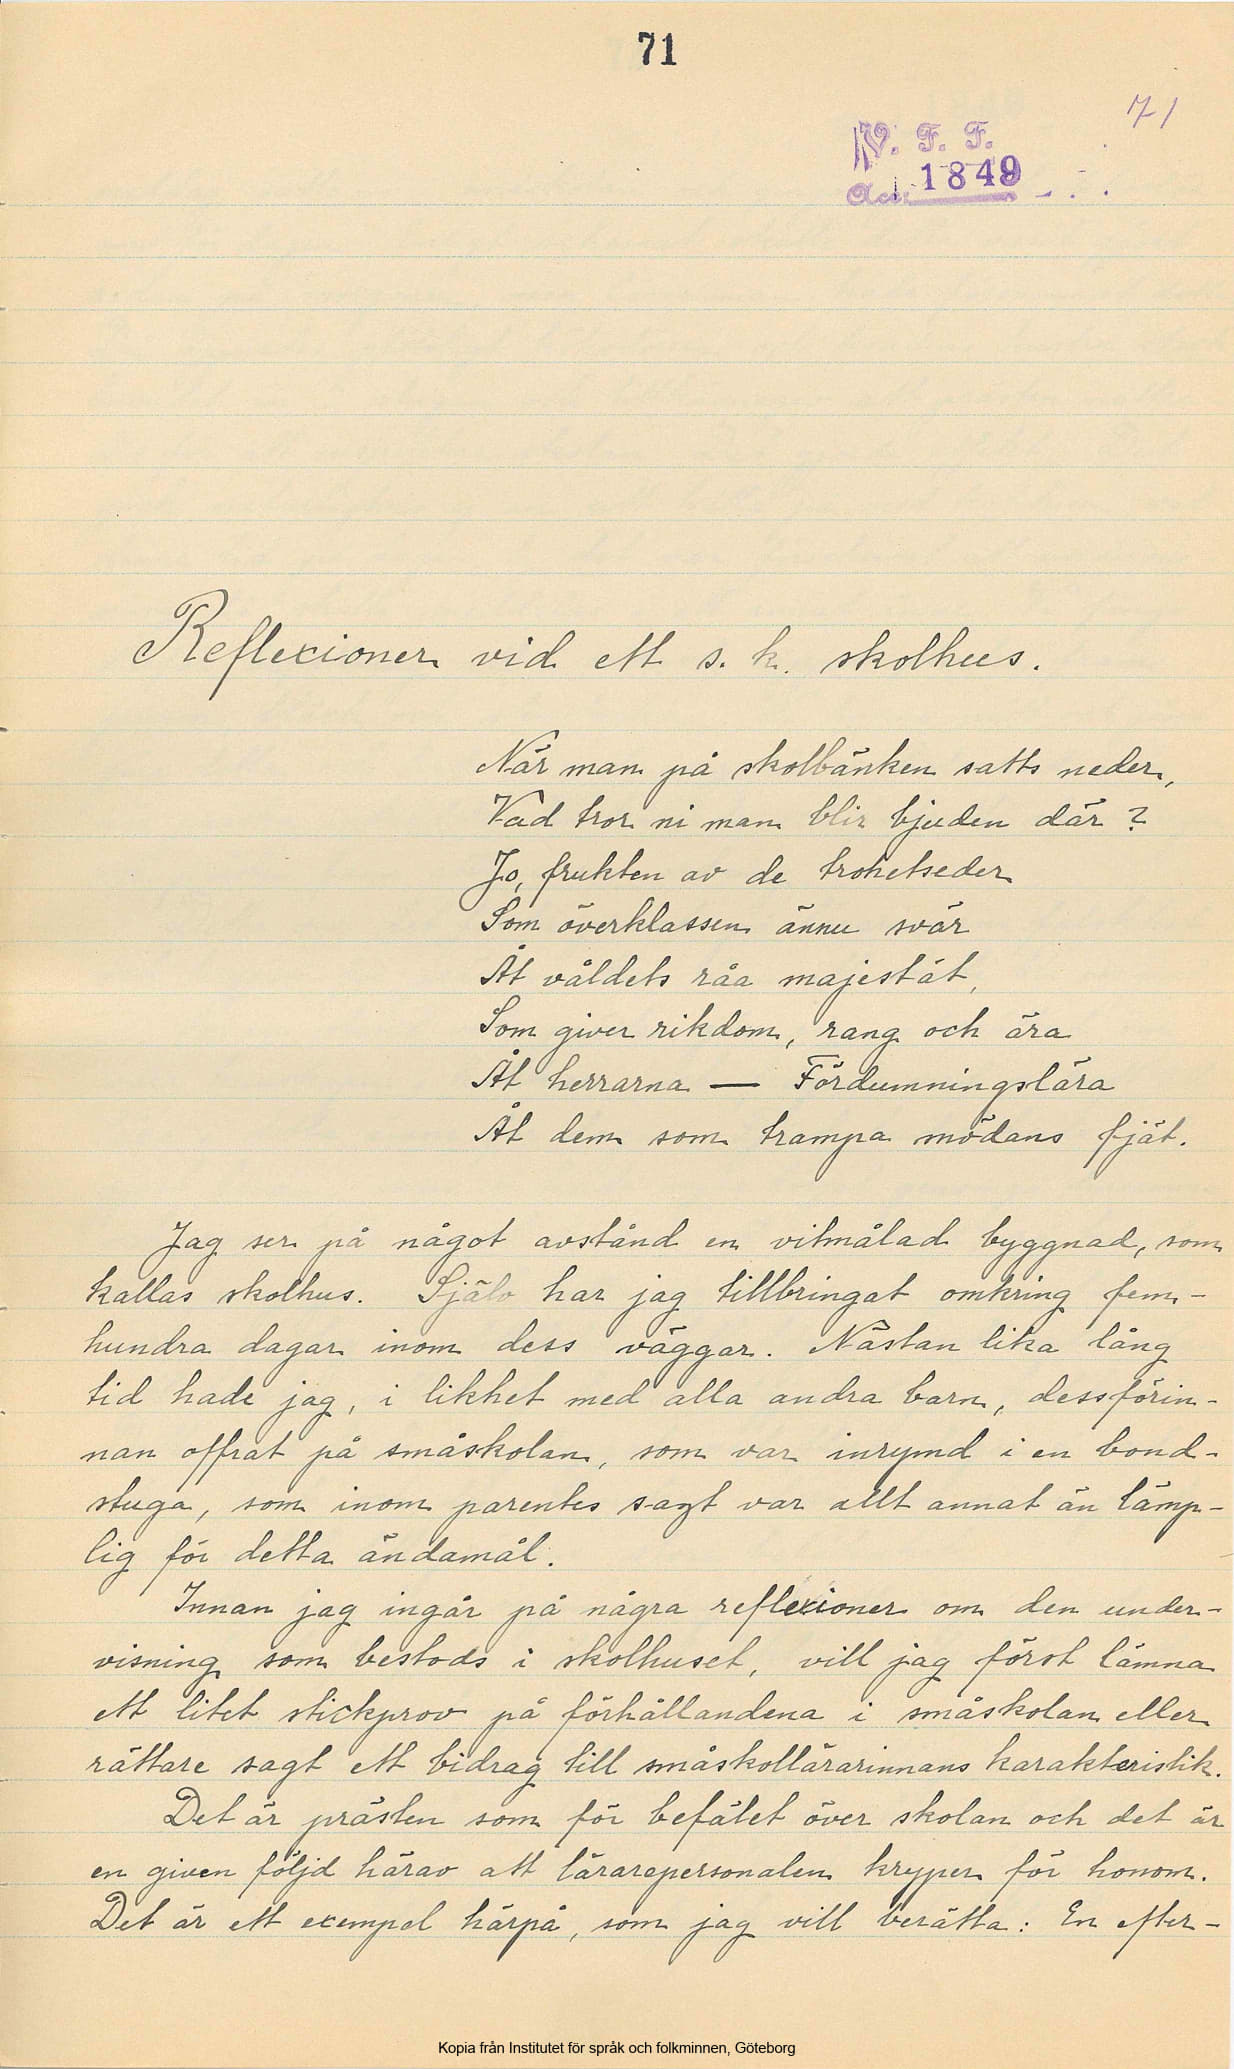 71
71
V. F. F.
Acc. 1849
Reflexioner vid ett s. k. skolhus.
När man på skolbänken satts neder,
Vad tror ni man blir bjuden där?
Jo, frukten av de trohetseder
Som överklassen ännu svär
Åt våldets råa majestät,
Som giver rikdom, rang och ära
Åt herrarna — Fördumningslära
Åt dem som trampa mödans fjät.
Jag ser på något avstånd en vitmålad byggnad, som
kallas skolhus. Själv har jag tillbringat omkring fem-
hundra dagar inom dess väggar. Nästan lika lång
tid hade jag, i likhet med alla andra barn, dessförin-
nan offrat på småskolan, som var inrymd i en bond-
stuga, som inom parentes sagt var allt annat än lämp-
lig för detta ändamål.
Innan jag ingår på några reflexioner om den under-
visning som bestods i skolhuset, vill jag först lämna
ett litet stickprov på förhållandena i småskolan eller
rättare sagt ett bidrag till småskollärarinnans karakteristik.
Det är prästen som för befälet över skolan och det är
en given följd härav att lärarepersonalen kryper för honom.
Det är ett exempel härpå, som jag vill berätta: En efter-
Kopia från Institutet för språk och folkminnen, Göteborg